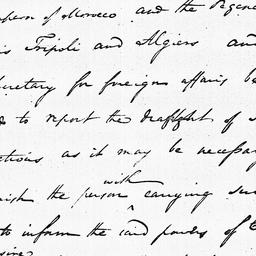 of Morocco and the Regenc
is Tripoli and Algiers and
cretary for foreign affairs be
to report the draught of
ctions as it may be necessary
with
nish the person carrying such
to inform the said powers of